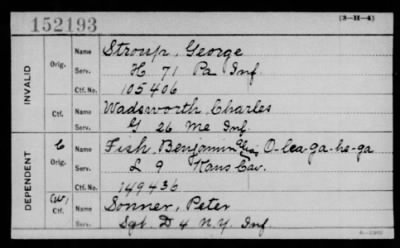 152193
[3-H-4]
INVALID
Orig.
Name Stroup, George
Serv. H 71 Pa Inf.
Ctf. No. 105406
Ctf.
Name Wadsworth, Charles
Serv. G 26 Me Inf.
DEPENDENT
C
Orig.
Name Fish, Benjamin O-lea-ga-he-ga
Serv. L 9 Kans Cav.
Ctf. No. 149436
Ctf.
Name Sonner, Peter
Serv. Sgt. D 4 N.Y. Inf.